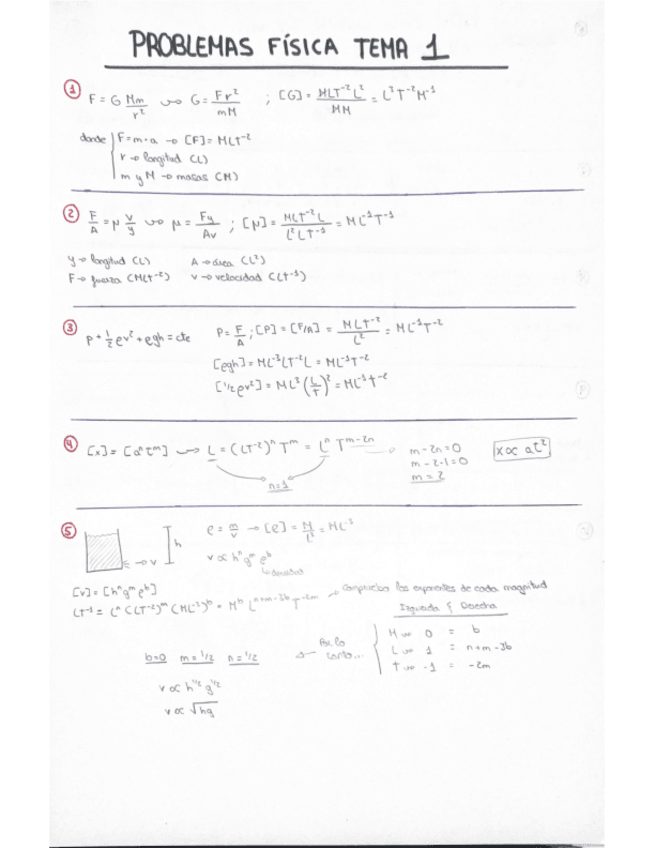 PROBLEMAS FÍSICA TEMA 1
① F = G Mm/r² → G = Fr²/mM ; [G] = MLT⁻²L²/MM = L³T⁻²M⁻¹
donde F = m·a → [F] = MLT⁻²
r → longitud (L)
m y M → masas (M)
② F/A = μ v/y → μ = Fy/Av ; [μ] = MLT⁻²L/L²LT⁻¹ = ML⁻¹T⁻¹
y → longitud (L) A → área (L²)
F → fuerza (MLT⁻²) v → velocidad (LT⁻¹)
③ P + ½ρv² + ρgh = cte P = F/A ; [P] = [F/A] = MLT⁻²/L² = ML⁻¹T⁻²
[ρgh] = ML⁻³LT⁻²L = ML⁻¹T⁻²
[½ρv²] = ML⁻³(L/T)² = ML⁻¹T⁻²
④ [x] = [aⁿtᵐ] → L = (LT⁻²)ⁿTᵐ = LⁿTᵐ⁻²ⁿ m-2n=0 x ∝ at²
m-2·1=0
n=1 m=2
⑤ h ρ = m/v → [ρ] = M/L³ = ML⁻³
→ v v ∝ hⁿgᵐρᵇ
densidad
[v] = [hⁿgᵐρᵇ]
LT⁻¹ = Lⁿ(LT⁻²)ᵐ(ML⁻³)ᵇ = MᵇLⁿ⁺ᵐ⁻³ᵇT⁻²ᵐ → Comprueba los exponentes de cada magnitud
Izquierda y Derecha
b=0 m=1/2 n=1/2 ← Por lo tanto... M → 0 = b
L → 1 = n+m-3b
T → -1 = -2m
v ∝ h^1/2 g^1/2
v ∝ √hg